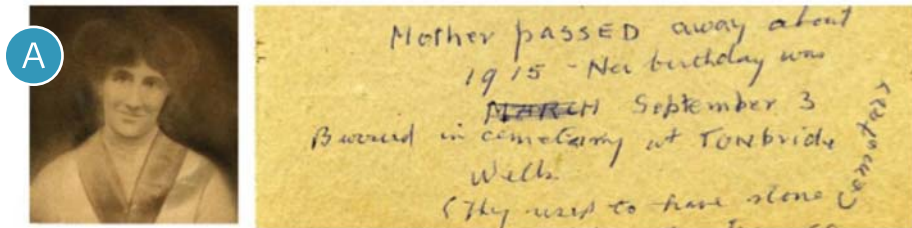 A
Mother PASSED away about
1915 - Her birthday was
MARCH September 3
Burried in cemetarry at TONbridge
Wells
(They used to have stone